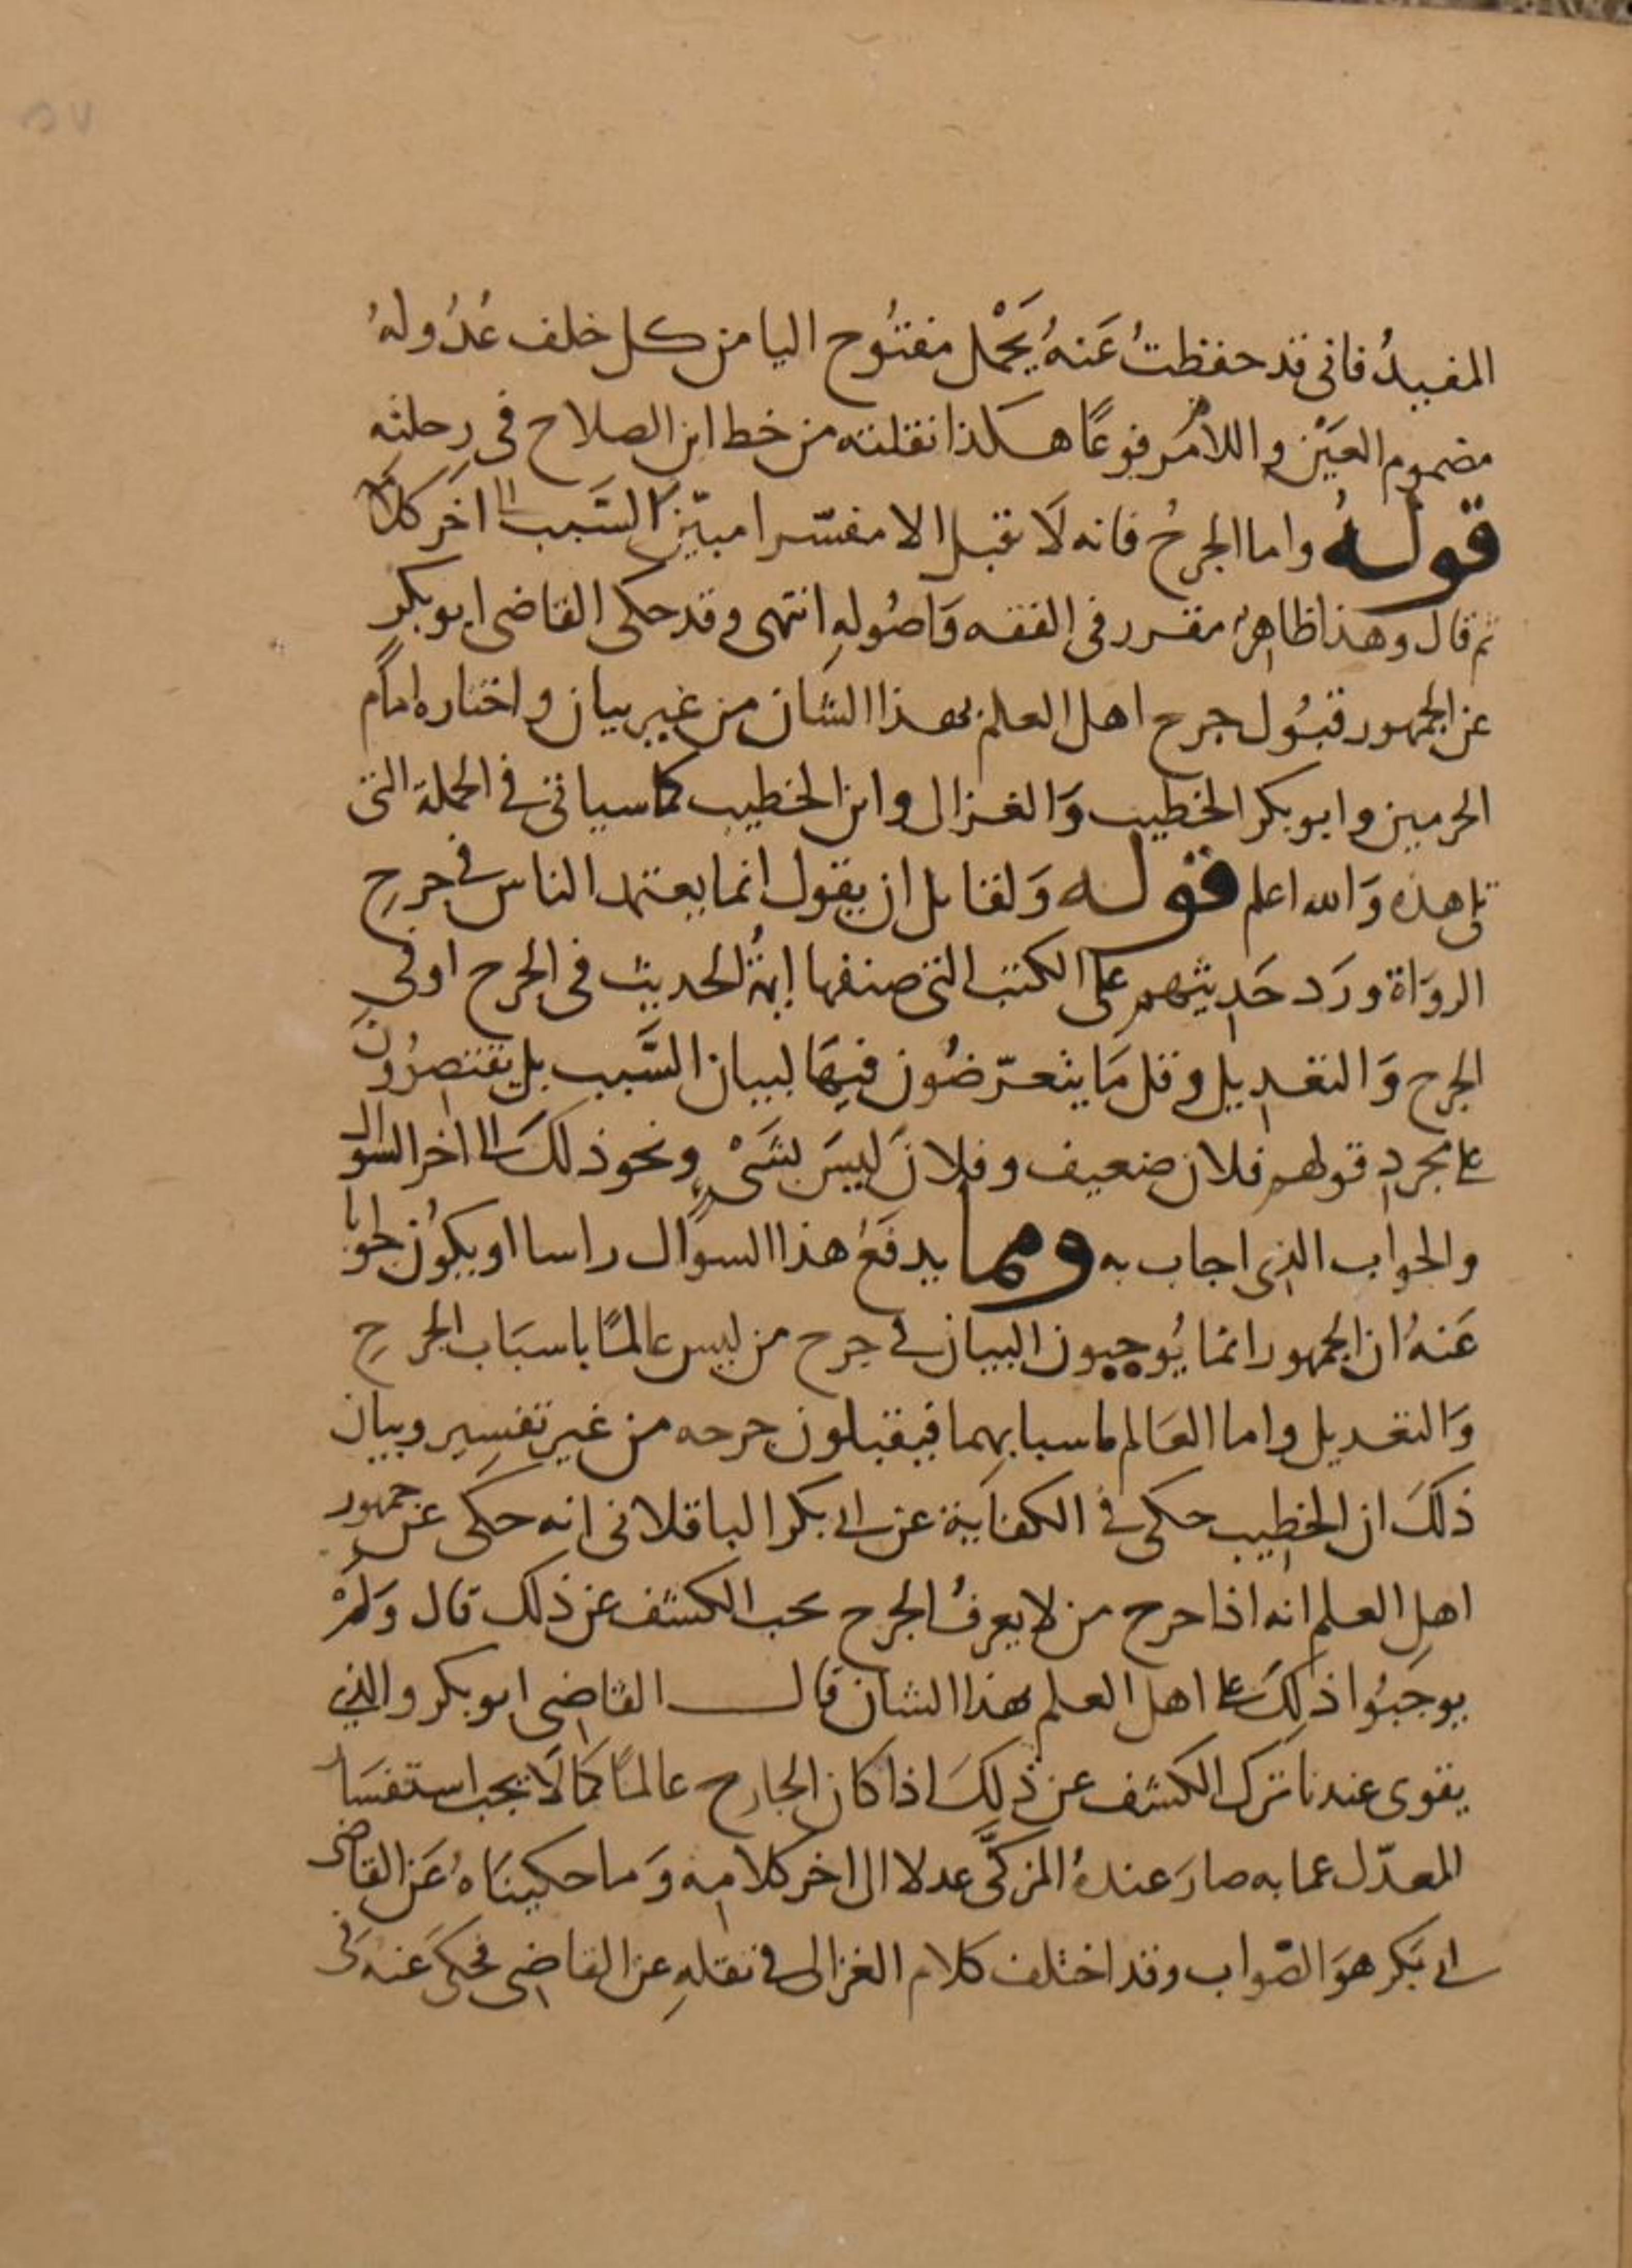 ٥٧
المفيدُ فانى قد حفظتُ عَنهُ يَحْمل مفتُوح اليا من كل خلف عُدُولهُ
مضموم العَيْن واللام مرفوعًا هكذا نقلته من خط ابن الصلاح فى رحلته
قولهُ واما الجرحُ فانه لَا يقبل الا مفسّرا مبيّن السَّبب الى اخر كلامه
ثم قال وهذا ظاهر مقرر فى الفقه وَاصُولهِ انتهى وقد حكى القاضى ابو بكرٍ
عن الجمهور قبُول جرح اهل العلم بهذا الشان من غير بيان واختاره امام
الحرمين وابو بكر الخطيب وَالغزالى وابن الخطيب كما سياتى فى الجملة التى
تلى هذه وَالله اعلم قوله وَلقائل ان يقول انما يعتمد الناس فى جرحِ
الروَاة ورَد حَديثهم على الكتب التى صنفها ايمةُ الحديث فى الجرح اوفى
الجرح وَالتعديل وقل مَا يتعرّضُون فيهَا لبيان السَّبب بل يقتصرُونَ
على مجرد قولهم فلان ضعيف وفلانَ ليسَ بشَىْءٍ ونحو ذلكَ الى اخر السوال
والجواب الذى اجاب به ومما يدفَعُ هذا السوال راسا او يكوُن جوابا
عَنهُ ان الجمهور انمَا يُوجبون البيان فى جرح من ليس عَالمًا باسبَاب الجرحِ
وَالتعديل واما العَالم باسبابهما فيقبلون جرحه من غير تفسِير وبيان
ذلكَ ان الخطيب حكى فى الكفاية عن ابى بكر الباقلانى انه حكى عن جمهور
اهلِ العلم انه اذا جرح من لا يعرفُ الجرح يجب الكشف عن ذلك قال وَلَمْ
يوجبُوا ذلِكَ على اهل العلم بهذا الشان قال القاضِى ابو بكر والذى
يقوى عندنا ترك الكشف عن ذلِكَ اذا كان الجارح عالمًا كمَا لَا يجب استفسَار
المعدّل عما به صارَ عندهُ المزكَّى عدلا الى اخر كلامِه وَما حكينَاهُ عَن القاضى
ابى بَكر هوَ الصّواب وقد اختلف كلام الغزالى فى نقلهِ عن القاضِى فحكىَ عَنه فى